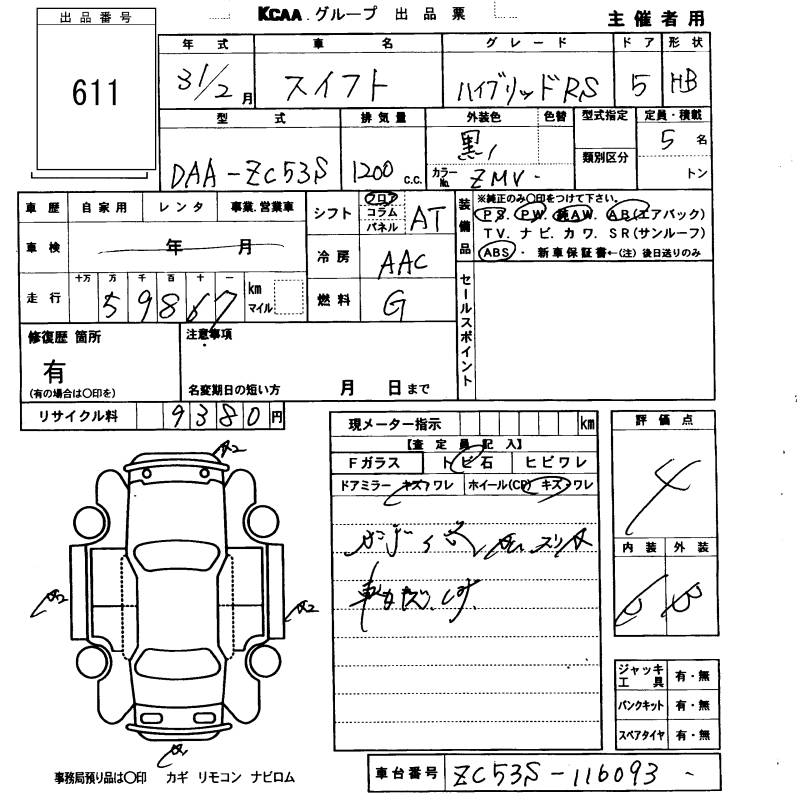 KCAA.グループ 出品票
主催者用
出品番号
611
年式 車名 グレード ドア 形状
31/2月 スイフト ハイブリッドRS 5 HB
型式 排気量 外装色 色替 型式指定 定員・積載
DAA-ZC53S 1200 c.c. 黒 カラーNo. ZMV 類別区分 5名 トン
車歴 自家用 レンタ 事業.営業車
車検 年 月
走行 十万 万 千 百 十 一
59867 km マイル
シフト フロア コラム パネル AT
冷房 AAC
燃料 G
装備品 ※純正のみ〇印をつけて下さい。
PS. PW. 純AW. AB(エアバック)
TV. ナビ. カワ. SR(サンルーフ)
ABS・新車保証書←(注)後日送りのみ
セールスポイント
修復歴 箇所
有
(有の場合は〇印を)
注意事項
名変期日の短い方 月 日まで
リサイクル料 9380円
現メーター指示 km
【査定員記入】
Fガラス トビ石 ヒビワレ
ドアミラー キズ・ワレ ホイール(CP) キズ・ワレ
評価点
4
内装 外装
B B
A2
A2
A2
A
ジャッキ工具 有・無
パンクキット 有・無
スペアタイヤ 有・無
事務局預り品は〇印 カギ リモコン ナビロム
車台番号 ZC53S-116093